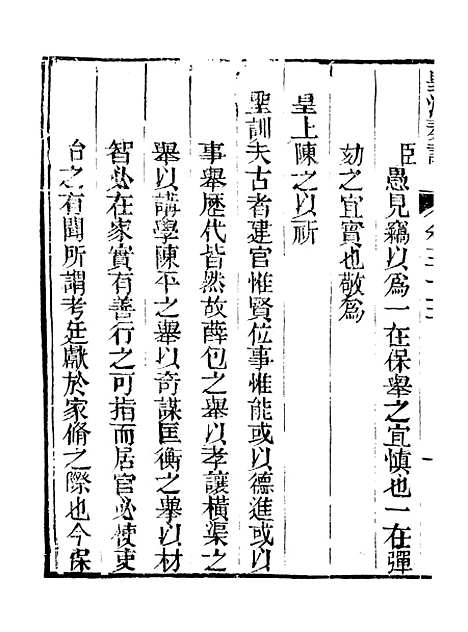 臣愚見竊以為一在保舉之宜慎也一在彈
劾之宜實也敬為
皇上陳之以祈
聖訓夫古者建官惟賢位事惟能或以德進或以
事舉歷代皆然故薛包之舉以孝讓橫渠之
舉以講學陳平之舉以奇謀匡衡之舉以材
智必在家實有善行之可指而居官必使吏
治之有聞所謂考廷獻於家脩之際也今保